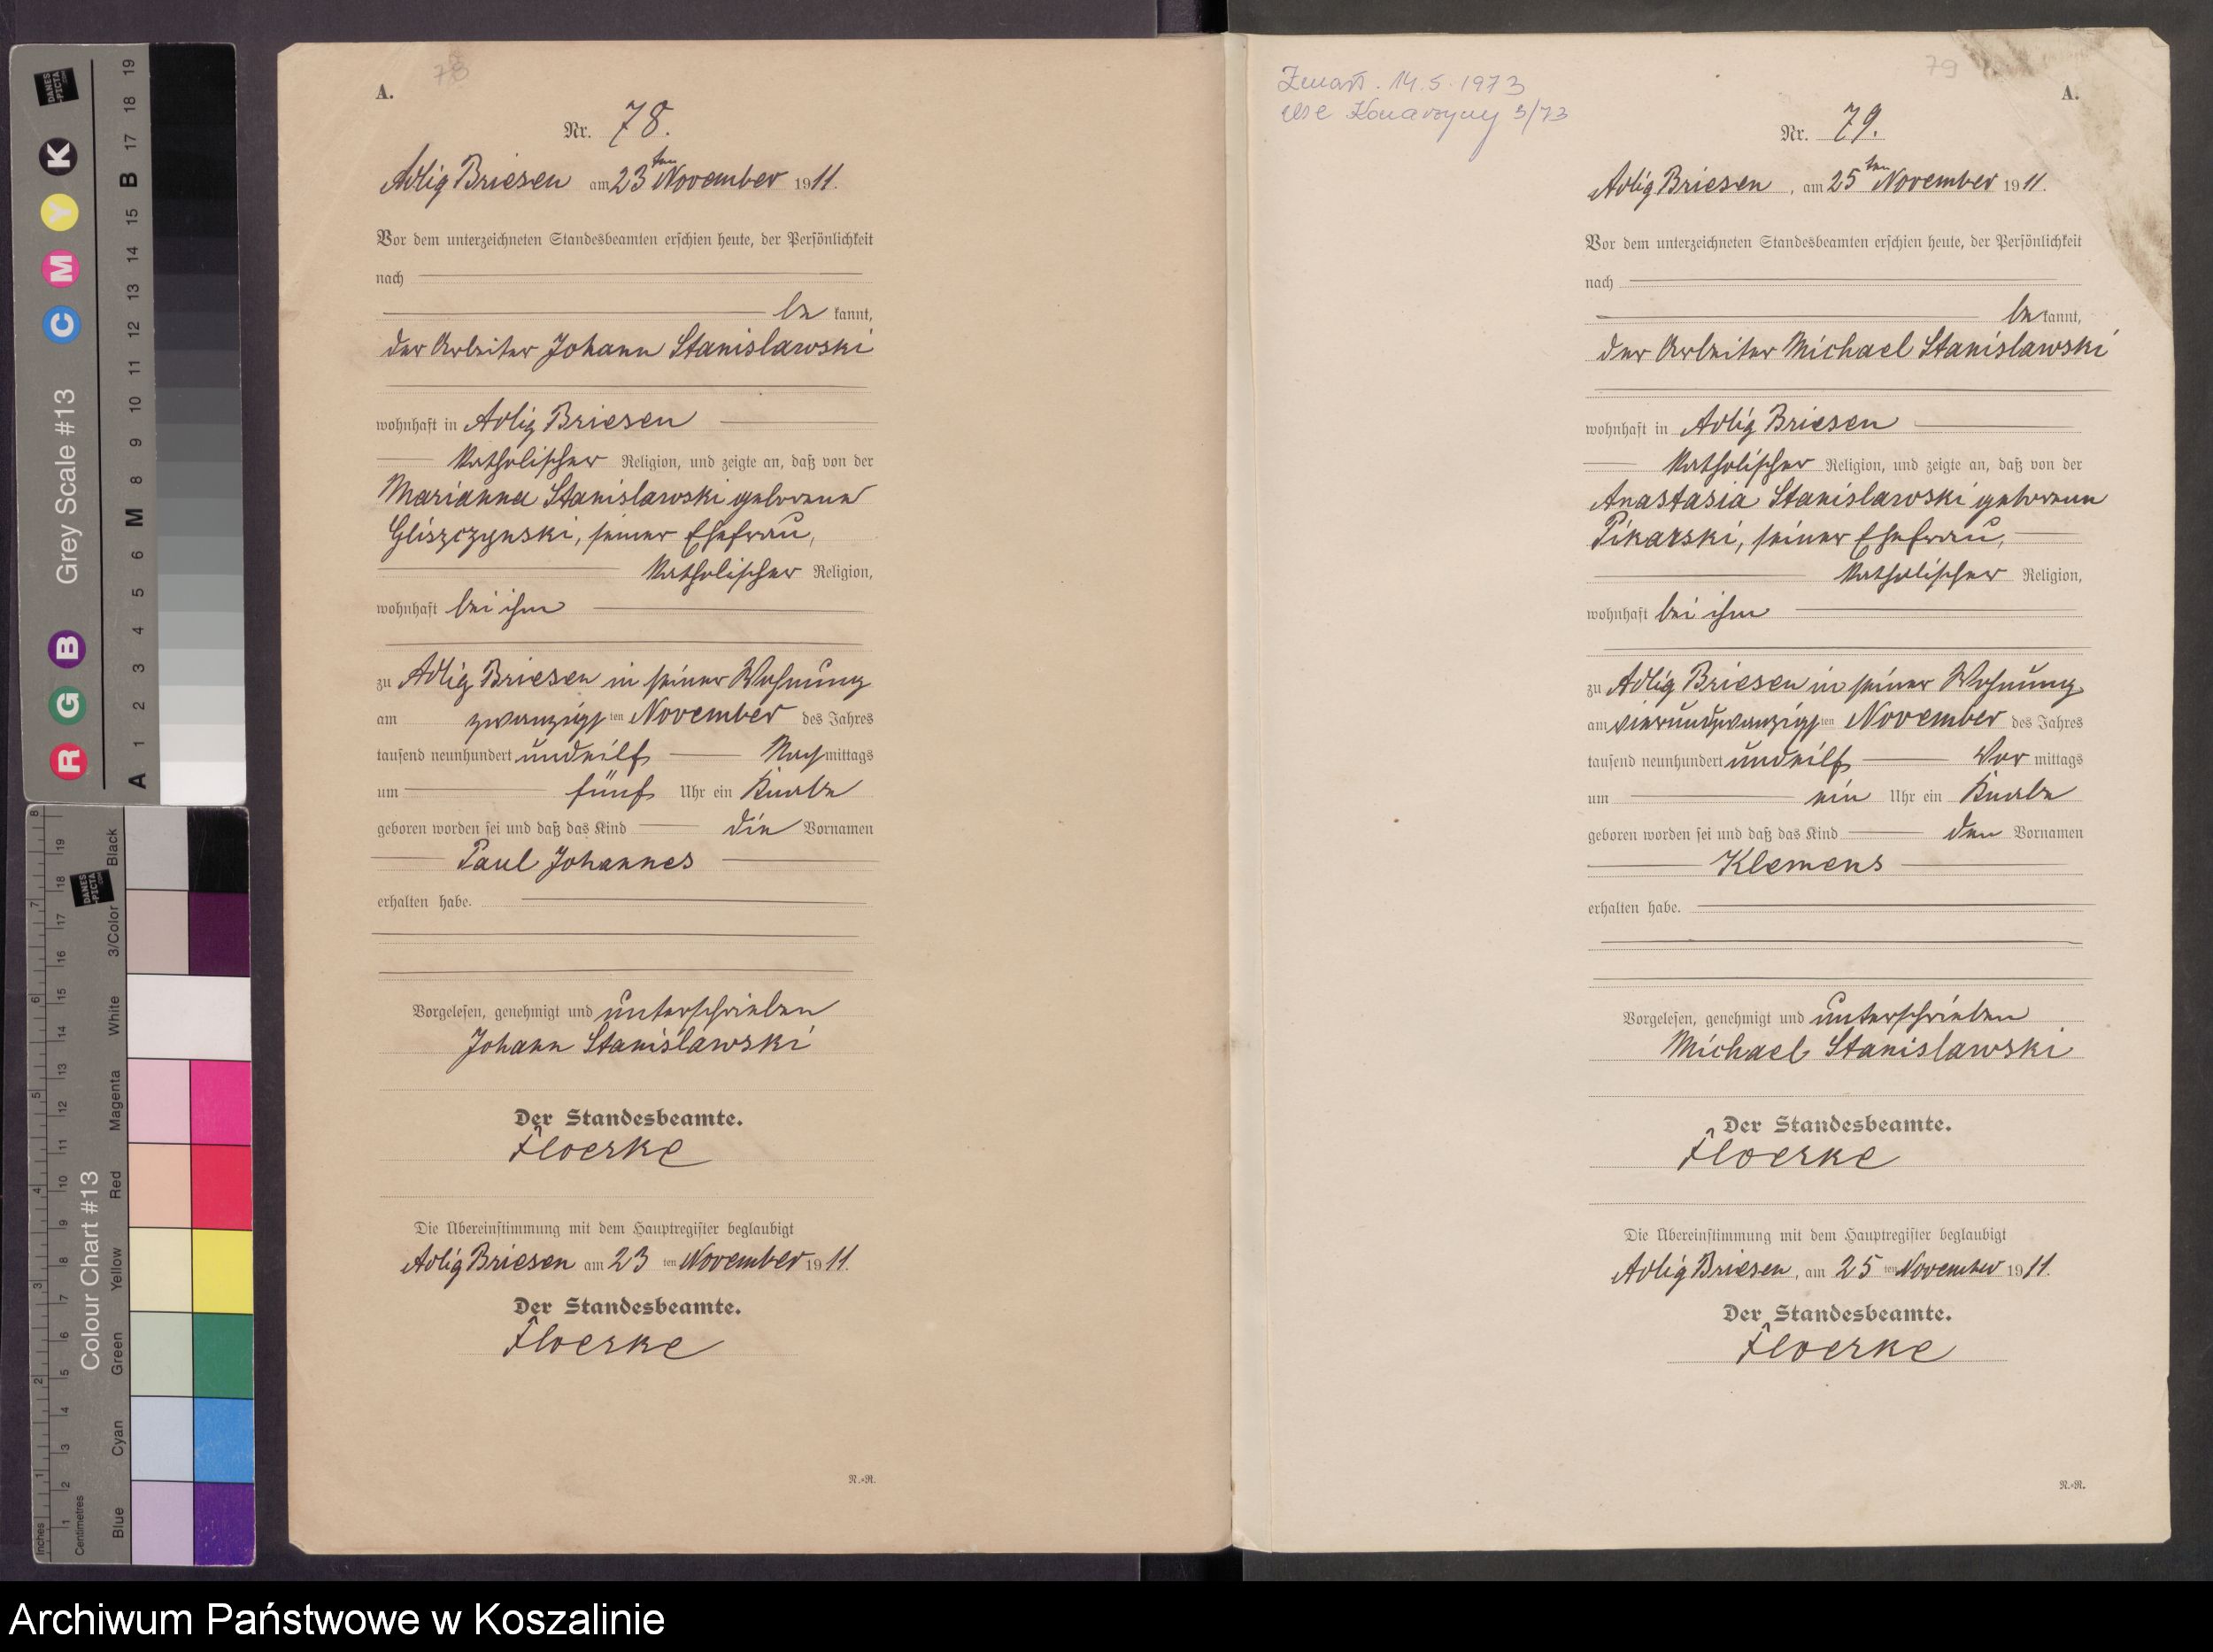 A.
78
Nr. 78.
Adlig Briesen am 23ten November 1911.
Vor dem unterzeichneten Standesbeamten erschien heute, der Persönlichkeit
nach
be kannt,
der Arbeiter Johann Stanislawski
wohnhaft in Adlig Briesen
katholischer Religion, und zeigte an, daß von der
Marianna Stanislawski geborene
Gliszczynski, seiner Ehefrau,
katholischer Religion,
wohnhaft bei ihm
zu Adlig Briesen in seiner Wohnung
am zwanzigsten November des Jahres
tausend neunhundert undeilf Nachmittags
um fünf Uhr ein Knabe
geboren worden sei und daß das Kind die Vornamen
Paul Johannes
erhalten habe.
Vorgelesen, genehmigt und unterschrieben
Johann Stanislawski
Der Standesbeamte.
Floerke
Die Übereinstimmung mit dem Hauptregister beglaubigt
Adlig Briesen am 23 ten November 1911.
Der Standesbeamte.
Floerke
N.-N.
Zmarł. 14.5.1973
USC Konarzyny 3/73
79
A.
Nr. 79.
Adlig Briesen, am 25ten November 1911.
Vor dem unterzeichneten Standesbeamten erschien heute, der Persönlichkeit
nach
be kannt,
der Arbeiter Michael Stanislawski
wohnhaft in Adlig Briesen
katholischer Religion, und zeigte an, daß von der
Anastasia Stanislawski geborene
Pikarski, seiner Ehefrau,
katholischer Religion,
wohnhaft bei ihm
zu Adlig Briesen in seiner Wohnung
am vierundzwanzigsten November des Jahres
tausend neunhundert undeilf Vor mittags
um ein Uhr ein Knabe
geboren worden sei und daß das Kind den Vornamen
Klemens
erhalten habe.
Vorgelesen, genehmigt und unterschrieben
Michael Stanislawski
Der Standesbeamte.
Floerke
Die Übereinstimmung mit dem Hauptregister beglaubigt
Adlig Briesen, am 25 ten November 1911.
Der Standesbeamte.
Floerke
N.-N.
Grey Scale #13
R G B C M Y K
A 1 2 3 4 5 6 M 8 9 10 11 12 13 14 15 B 17 18 19
DANES-PICTA.COM
Colour Chart #13
Blue Cyan Green Yellow Red Magenta White 3/Color Black
Inches 1 2 3 4 5 6 7 8
Centimetres 1 2 3 4 5 6 7 8 9 10 11 12 13 14 15 16 17 18 19
DANES-PICTA.COM
Archiwum Państwowe w Koszalinie